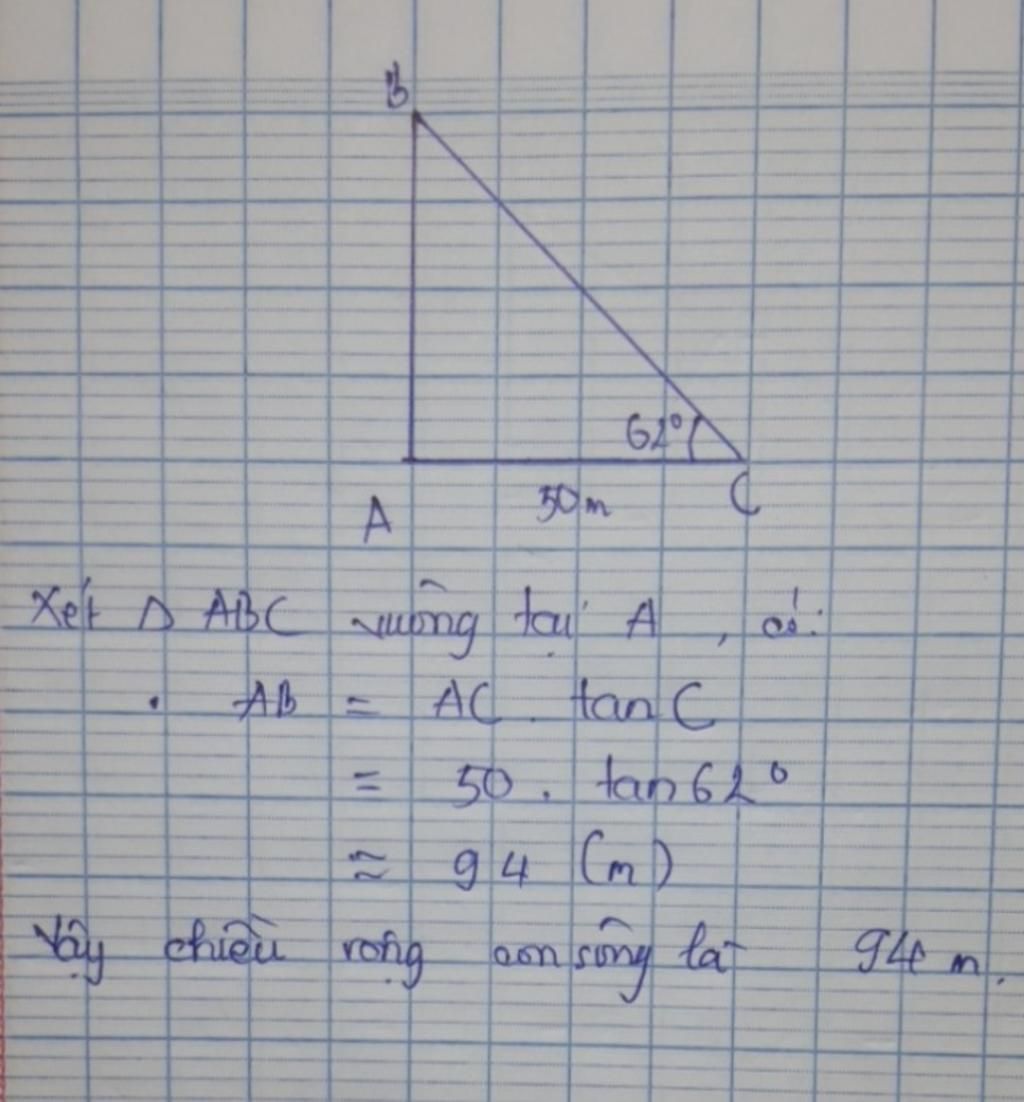 B
62°
A
50m
C
Xét Δ ABC vuông tại A , có:
. AB = AC . tan C
= 50 . tan 62°
≈ 94 (m)
Vậy chiều rộng con sông là 94 m.